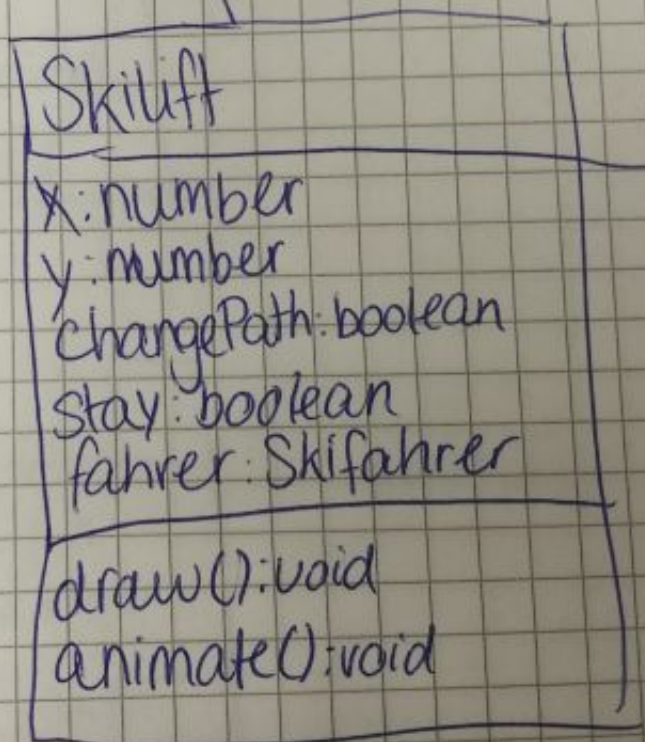 Skilift
x: number
y: number
changePath: boolean
stay: boolean
fahrer: Skifahrer
draw(): void
animate(): void